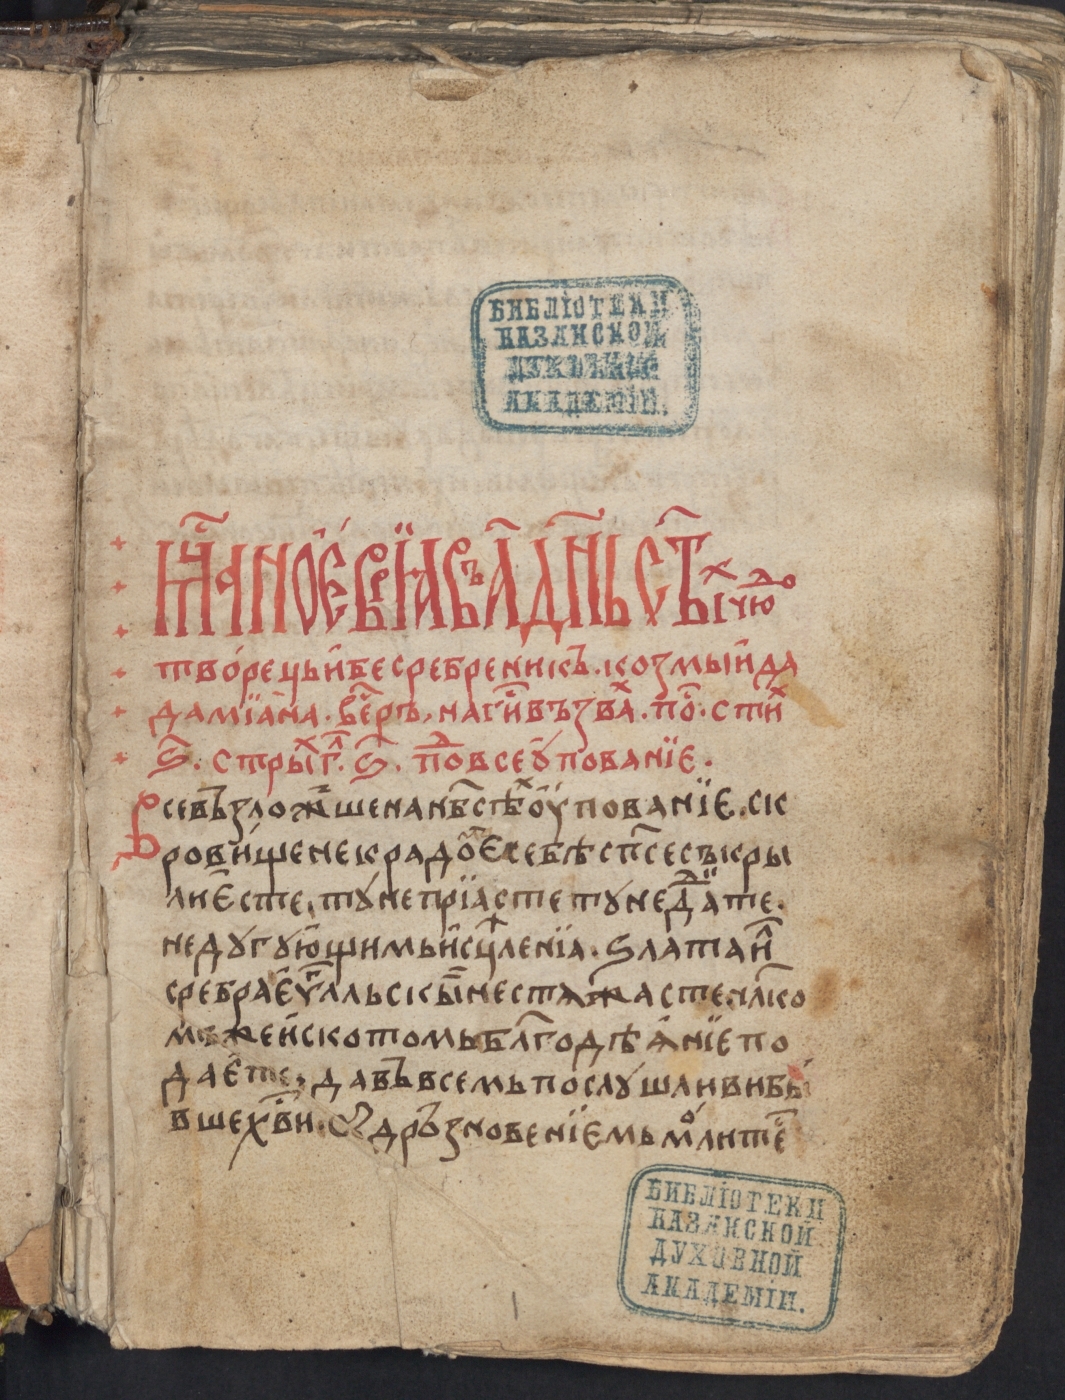 БИБЛІОТЕКИ
КАЗАНСКОЙ
ДУХОВНОЙ
АКАДЕМІИ.
мц҃а ноеврїа въ а҃ д҃нь ст҃ыⷯ чюдо
тво́рець и бесребреникъ. козмы и да
дамїана. вече́ръ, на гі҃ и възваⷯ. пої. стиⷯ
ѕ҃. стрыⷯ г҃л. ѕ҃. поⷣ всеу́пованїе.
Все възложьше на нб҃сѣⷯ оу́пованїе. ск
ровище некрадоⷨ є себѣ сп҃се съкры
лиєсте, ту́не прїасте туне даⷣите.
недугую́щимь и҆сцⷧ҇енїа. ѕлата и҆лⷧ
сребра єуⷢ҇альскы не стѧжасте. чл҃ко
мже и скотомь бл҃годѣѧ́нїе по
даєте, да въ всемь послушливи бы
вше хв҃и. съ дръзновенїемь мо́лите
БИБЛІОТЕКИ
КАЗАНСКОЙ
ДУХОВНОЙ
АКАДЕМІИ.